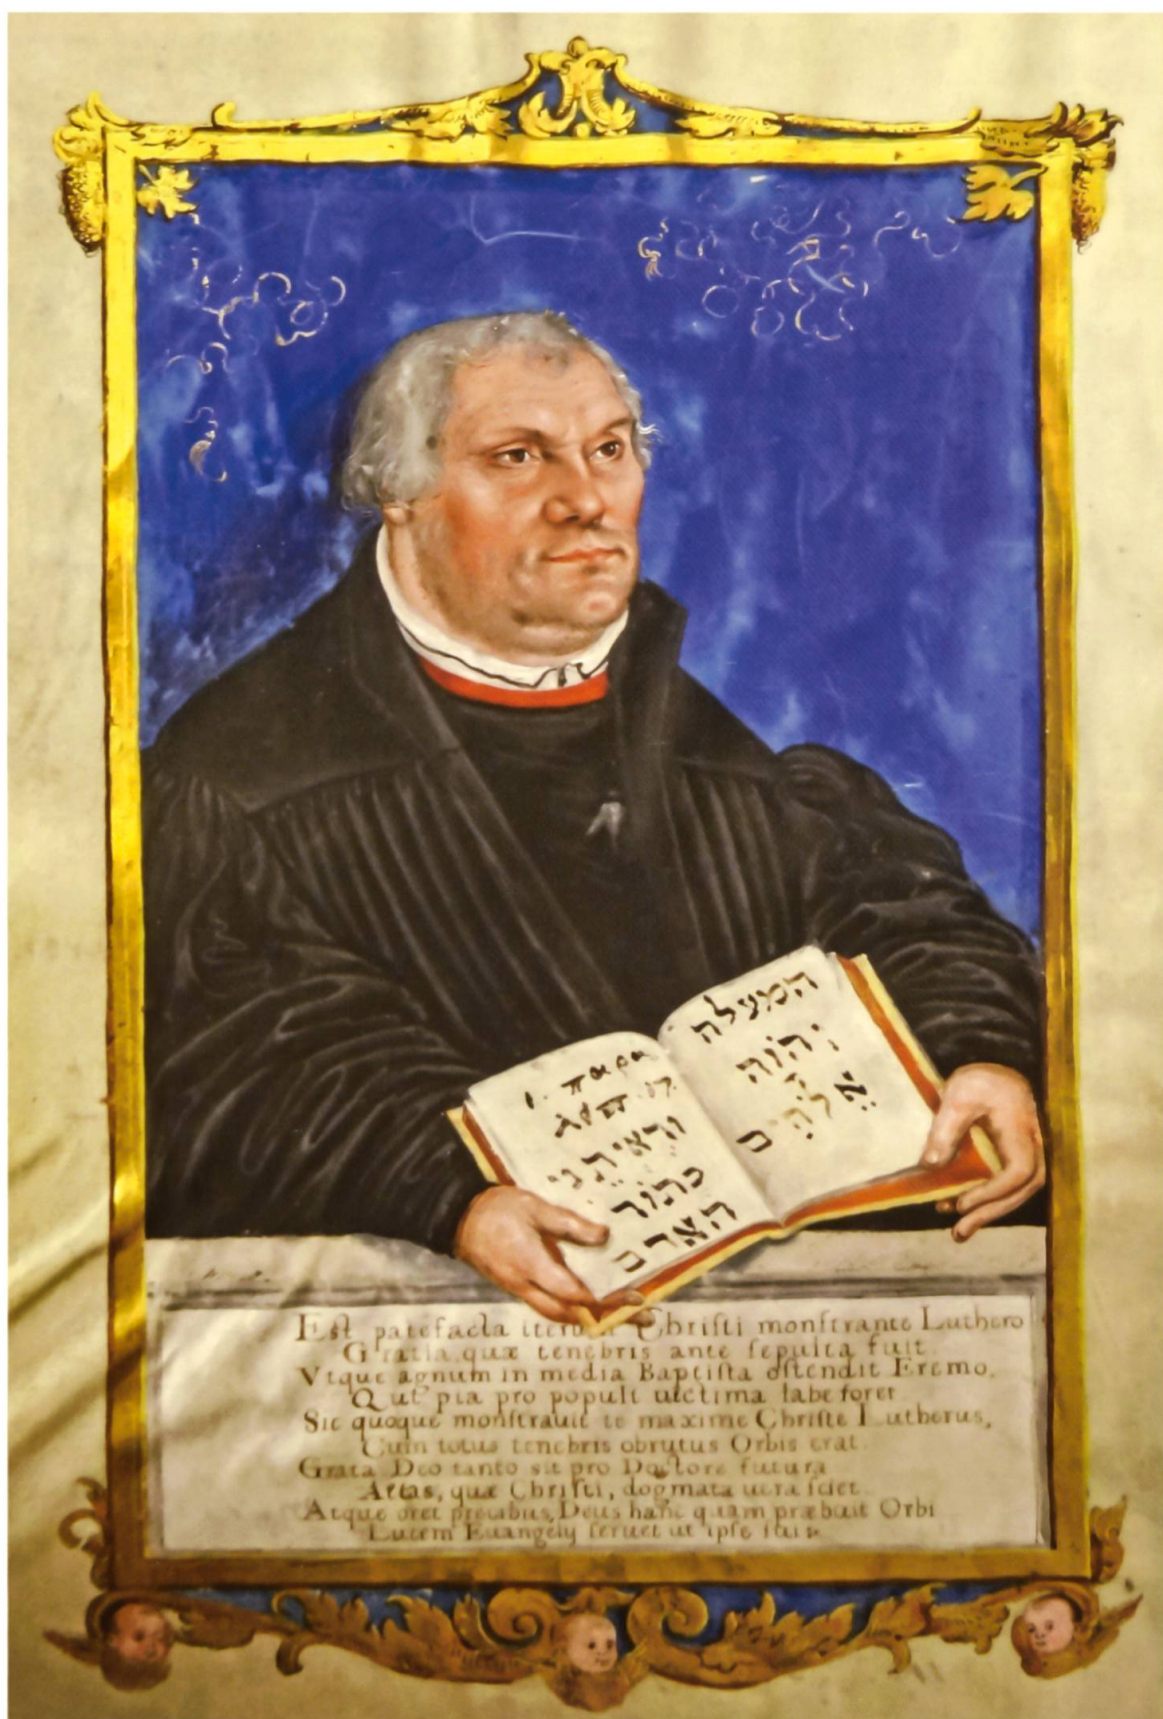 1. παρα
וראיתני
כתור
האדם
המעלה
יהוה
אלהים
Eſt patefacta iterum Chriſti monſtrante Luthero
Gratia, quæ tenebris ante ſepulta fuit.
Vtque agnum in media Baptiſta oſtendit Eremo,
Qui pia pro populi uictima labe foret
Sic quoque monſtrauit te maxime Chriſte Lutherus,
Cum totus tenebris obrutus Orbis erat.
Grata Deo tanto sit pro Doctore futura
Aetas, quæ Chriſti, dogmata uera ſciet.
Atque oret precibus, Deus hanc quam præbuit Orbi
Lucem Euangely ſeruet ut ipſe